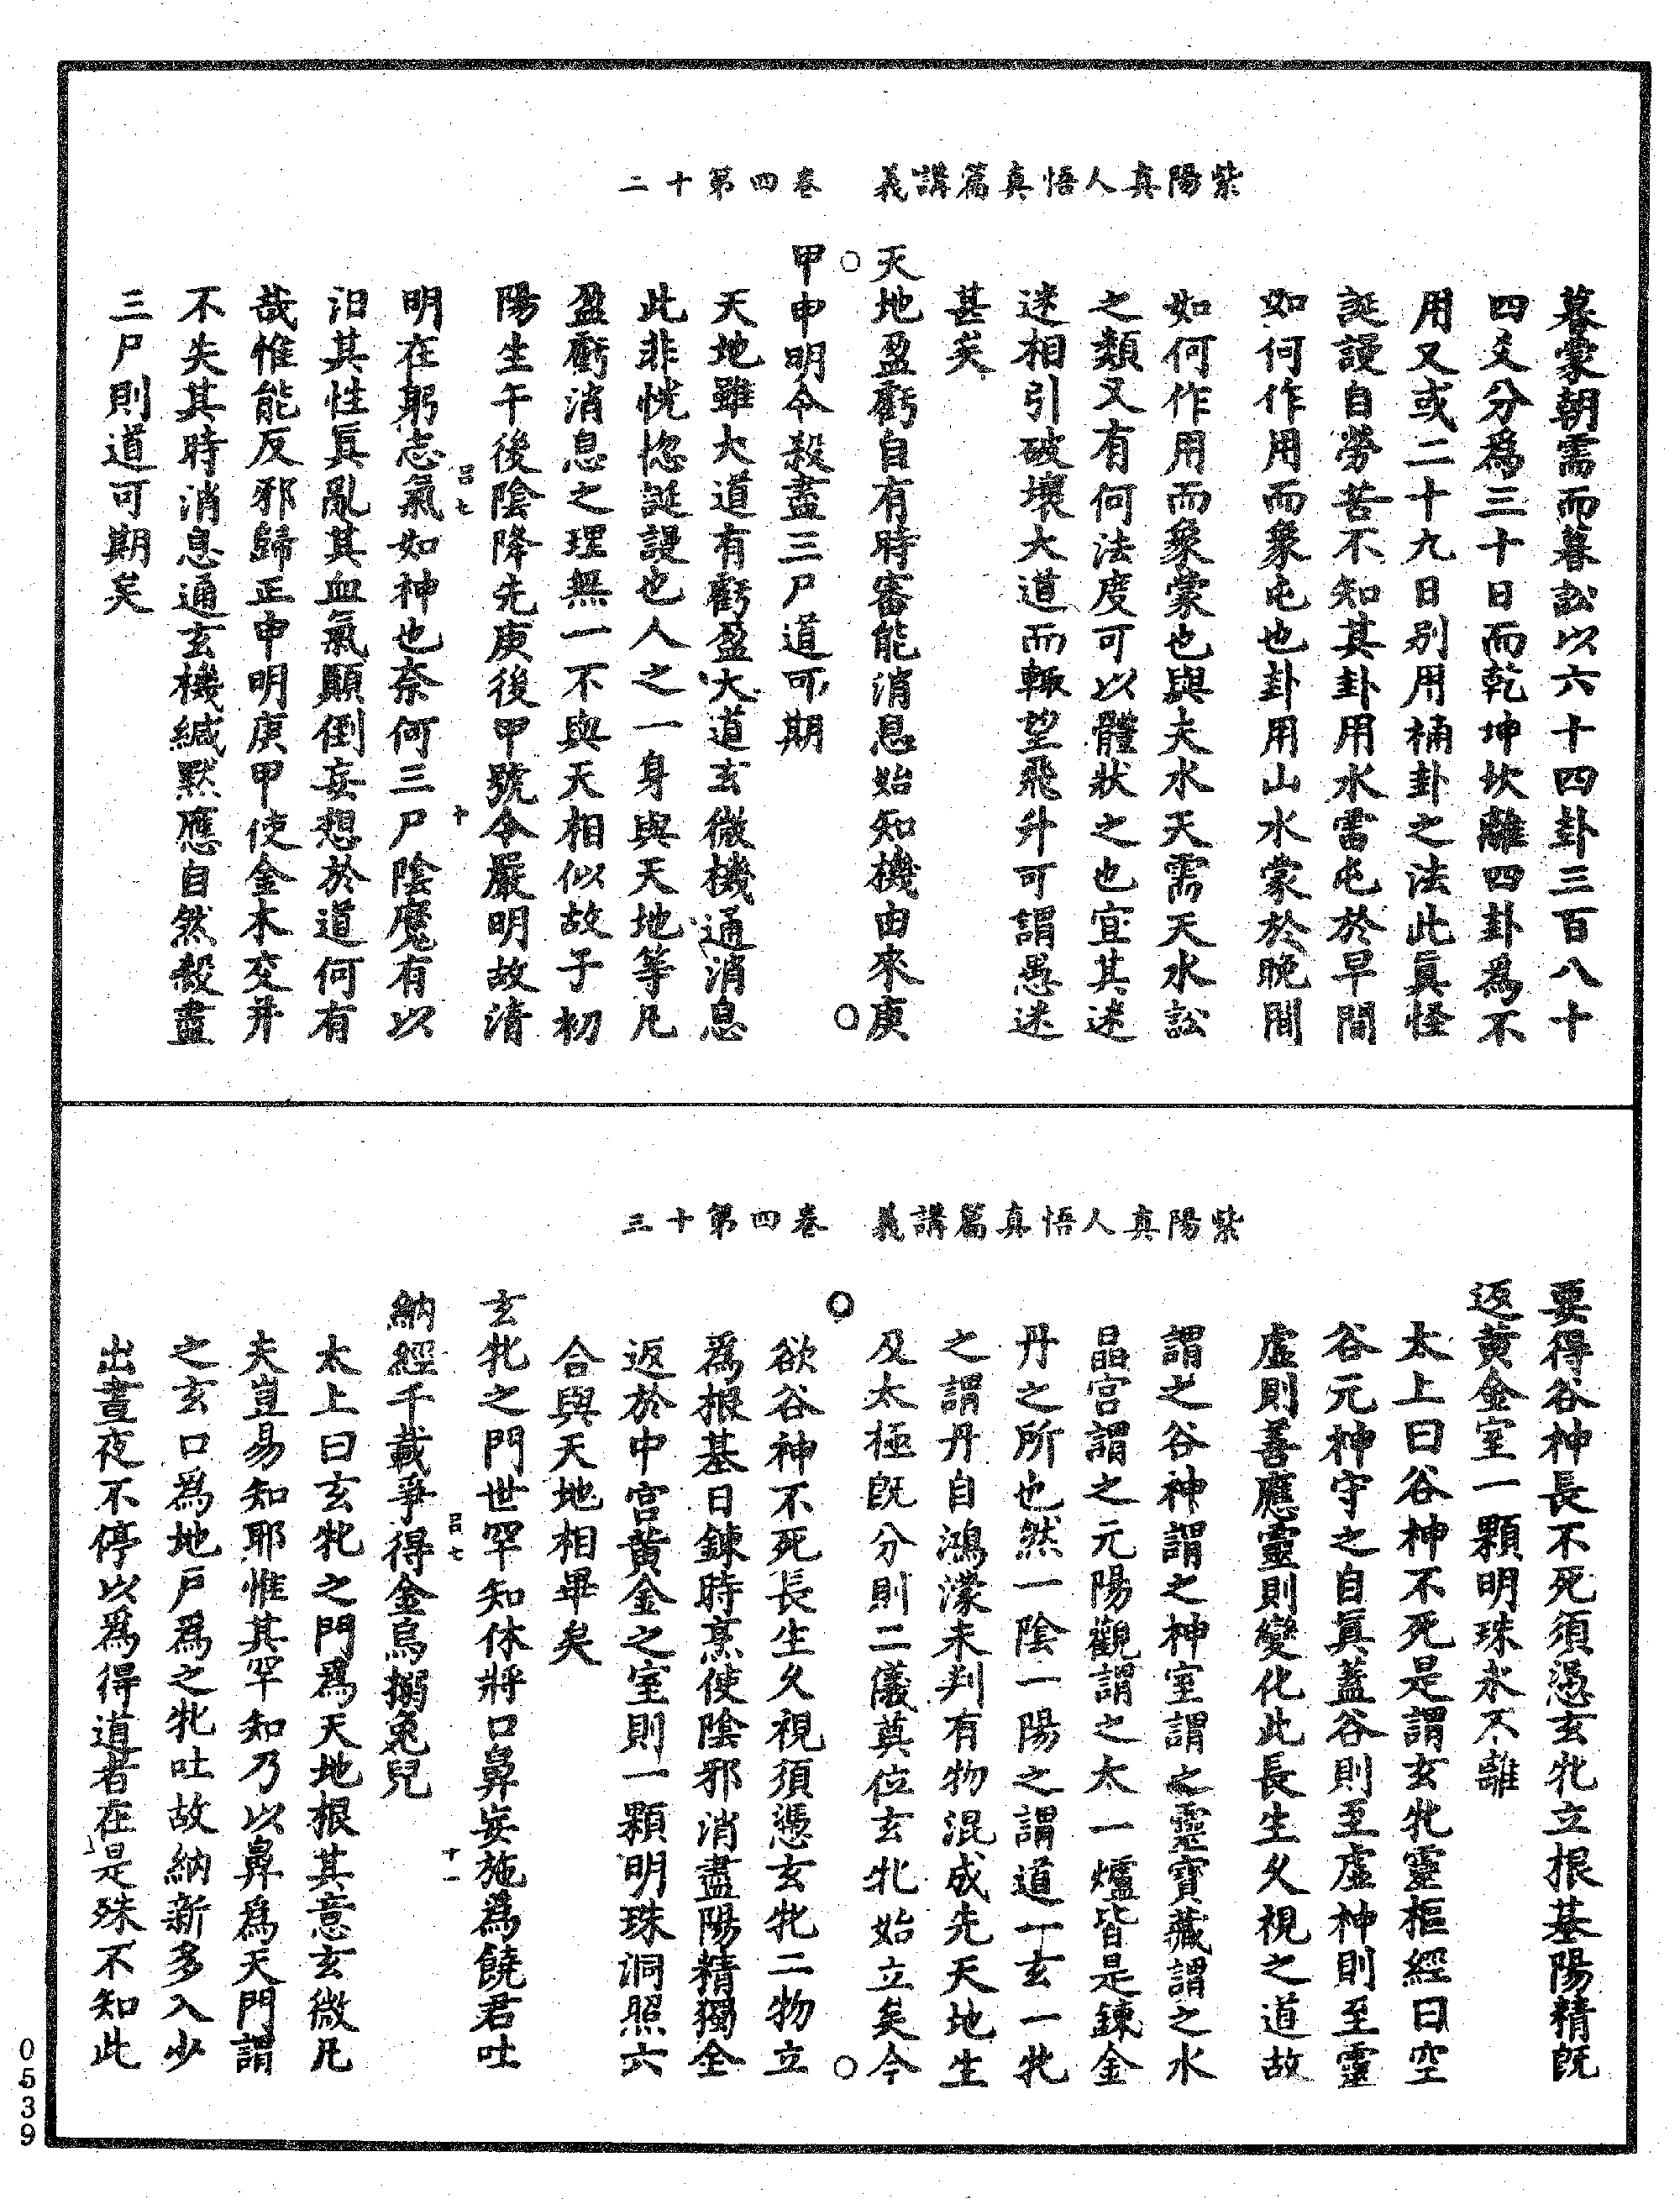 紫陽真人悟真篇講義　卷四第十二
暮蒙朝需而暮訟以六十四卦三百八十
四爻分爲三十日而乾坤坎離四卦爲不
用又或二十九日别用補卦之法此眞怪
誕謾自勞苦不知其卦用水雷屯於早間
如何作用而象屯也卦用山水蒙於晚間
如何作用而象蒙也與夫水天需天水訟
之類又有何法度可以體狀之也宜其迷
迷相引破壞大道而輙望飛升可謂愚迷
甚矣
天地盈虧自有時審能消息始知機由來庚
甲申明令殺盡三尸道可期
天地雖大道有虧盈大道玄微機通消息
此非恍惚誕謾也人之一身與天地等凡
盈虧消息之理無一不與天相似故子初
陽生午後陰降先庚後甲號令嚴明故清
吕七　十
明在躬志氣如神也柰何三尸陰魔有以
汩其性眞亂其血氣顚倒妄想於道何有
哉惟能反邪歸正申明庚甲使金木交并
不失其時消息通玄機緘默應自然殺盡
三尸則道可期矣
紫陽真人悟真篇講義　卷四第十三
要得谷神長不死須憑玄牝立根基陽精旣
返黄金室一顆明珠永不離
太上曰谷神不死是謂玄牝靈樞經曰空
谷元神守之自眞蓋谷則至虛神則至靈
虛則善應靈則變化此長生久視之道故
謂之谷神謂之神室謂之靈寶藏謂之水
晶宫謂之元陽觀謂之太一爐皆是鍊金
丹之所也然一陰一陽之謂道一玄一牝
之謂丹自鴻濛未判有物混成先天地生
及太極旣分則二儀奠位玄牝始立矣今
欲谷神不死長生久視須憑玄牝二物立
爲根基日鍊時烹使陰邪消盡陽精獨全
返於中宫黄金之室則一顆明珠洞照六
合與天地相畢矣
玄牝之門世罕知休將口鼻妄施爲饒君吐
吕七　十一
納經千載爭得金烏搦兔兒
太上曰玄牝之門爲天地根其意玄微凡
夫豈易知耶惟其罕知乃以鼻爲天門謂
之玄口爲地戶爲之牝吐故納新多入少
出晝夜不停以爲得道者在是殊不知此
0539